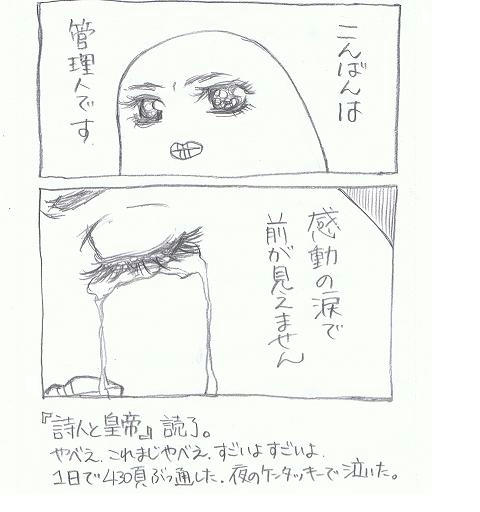 こんばんは
管理人です
感動の涙で
前が見えません
『詩人と皇帝』読了。
やべえ、これまじやべえ、すごいよすごいよ
1日で430頁ぶっ通した、夜のケンタッキーで泣いた。